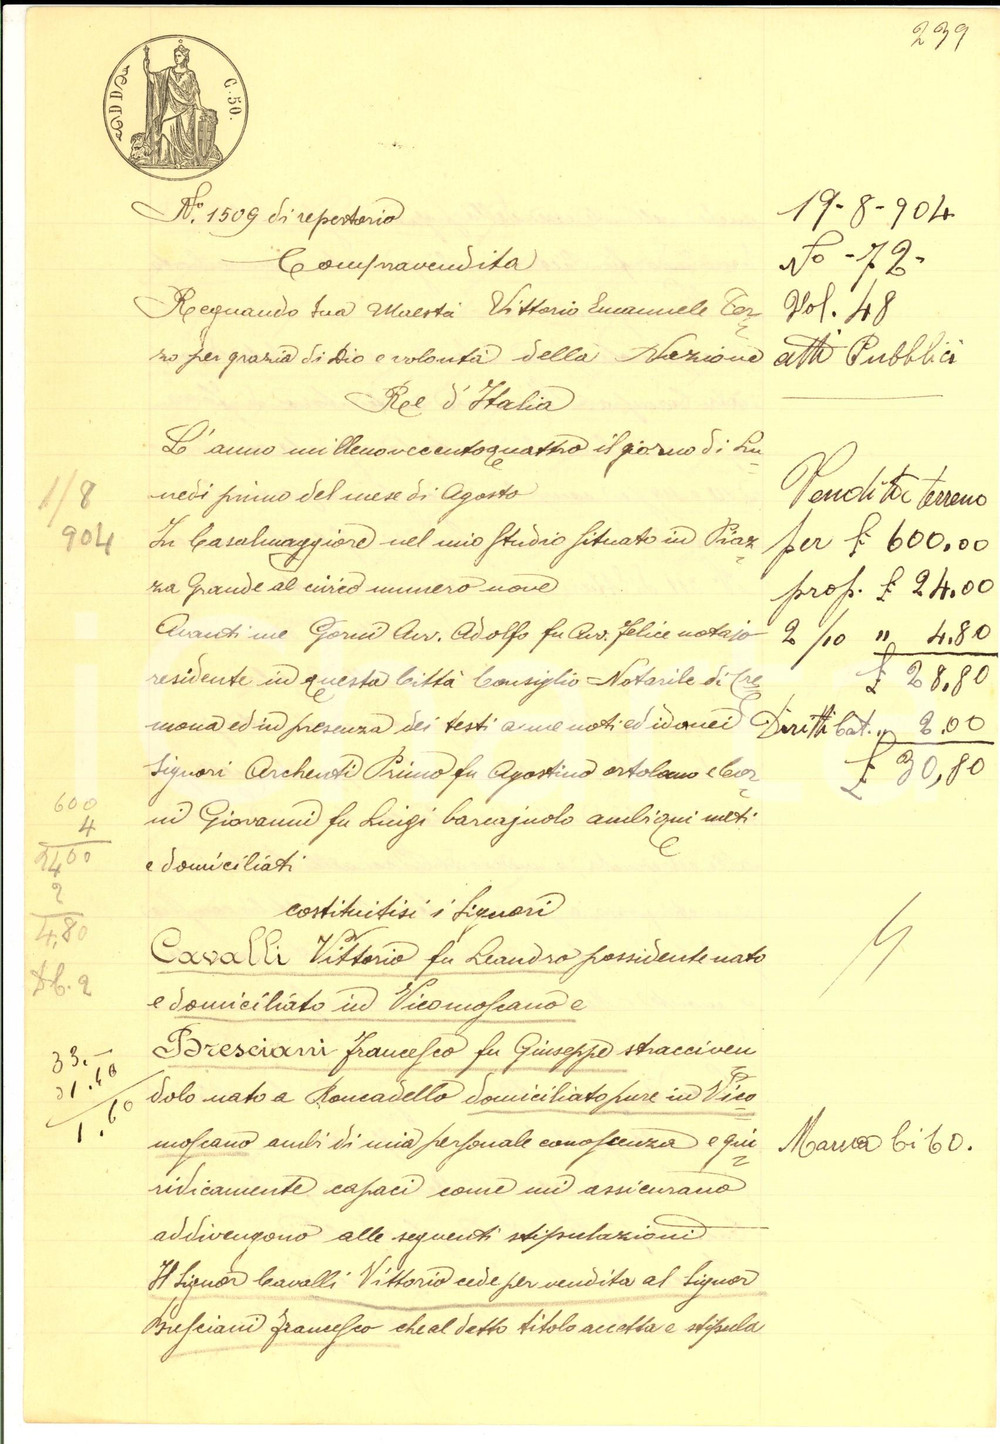 239
C. 50.
N.º 1509 di repertorio
Compravendita
Regnando Sua Maestà Vittorio Emanuele Ter=
zo per grazia di Dio e volontà della Nazione
Re d'Italia
L'anno millenovecentoquattro il giorno di Lu=
nedi primo del mese di Agosto
In Casalmaggiore nel mio studio situato in Piaz=
za Grande al civico numero nove
Avanti me Gorni Avv. Adolfo fu Avv. Felice notajo
residente in questa Città Consiglio Notarile di Cre=
mona ed in presenza dei testi a me noti ed idonei
Signori Archenti Primo fu Agostino ortolano e Gor=
ni Giovanni fu Luigi barcajuolo ambi qui nati
e domiciliati
costituitisi i Signori
Cavalli Vittorio fu Leandro possidente nato
e domiciliato in Vicomoscano e
Bresciani Francesco fu Giuseppe stracciven
dolo nato a Roncadello domiciliato pure in Vico=
moscano ambi di mia personale conoscenza e giu=
ridicamente capaci come mi assicurano
addivengono alle seguenti stipulazioni
Il Signor Cavalli Vittorio cede per vendita al Signor
Bresciani Francesco che al detto titolo accetta e stipula
19-8-904
Nº -72-
Vol. 48
atti Pubblici
Vendita terreno
per £ 600.00
prop. £ 24.00
2/10 " 4.80
£ 28,80
Diritti Cat. " 2.00
£ 30,80
1/8
904
600
4
2400
2
4,80
Db. 2
33.-
31.40
1.60